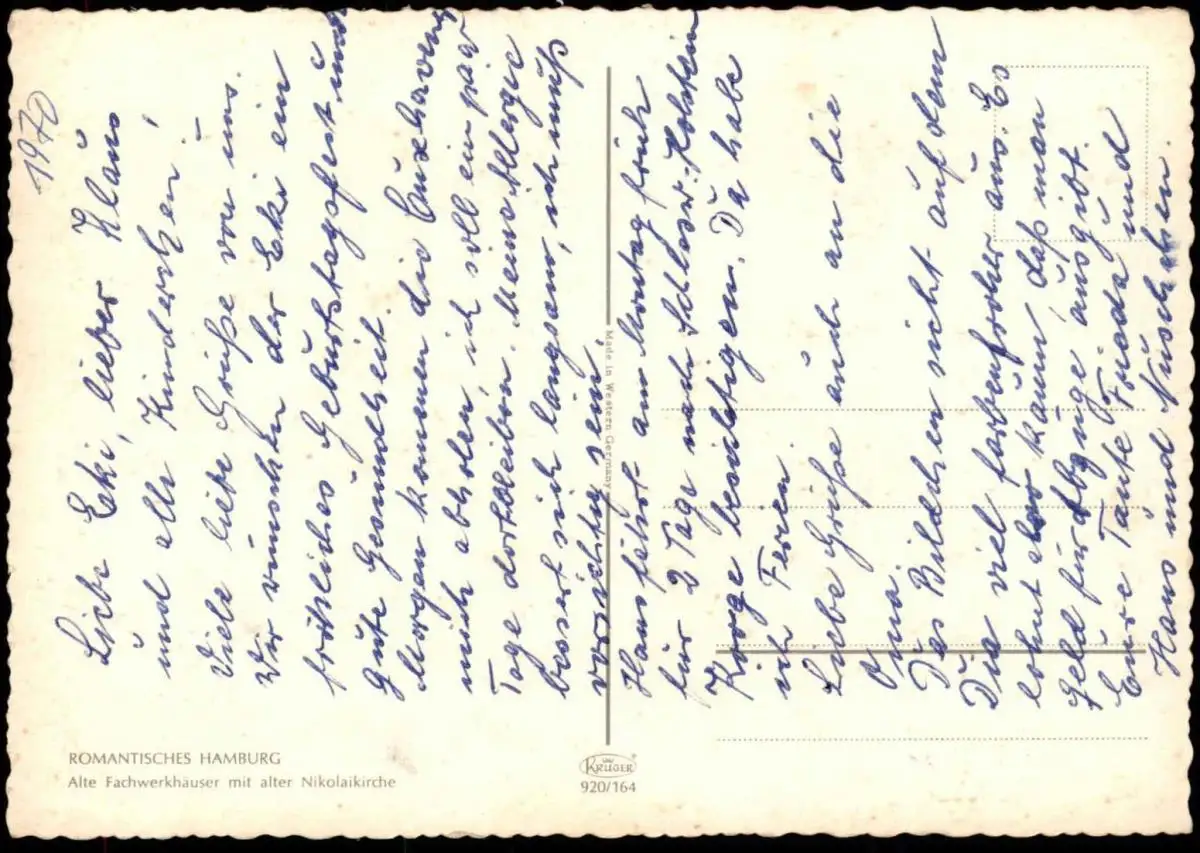 1970
Liebe Eki, lieber Klaus
und alle Kinderchen!
Viele liebe Grüße von uns.
Wir wünschen der Eki ein
fröhliches Geburtstagsfest und
gute Gesundheit.
Morgen kommen die Cuxhavener
mich abholen, ich soll ein paar
Tage dortbleiben. Meine Allergie
bessert sich langsam, ich muß
vorsichtig sein.
Hans fährt am Montag früh
für 2 Tage nach Schlesw.-Holstein
Körge besichtigen. Da habe
ich Ferien.
Liebe Grüße auch an die
Oma.
Das Bildchen sieht auf dem
Dia viel farbenfroher aus. Es
lohnt aber kaum daß man
Geld für Abzüge ausgibt.
Eure Tante Frieda und
Hans und
ROMANTISCHES HAMBURG
Alte Fachwerkhäuser mit alter Nikolaikirche
KRÜGER
920/164
Made in Western Germany